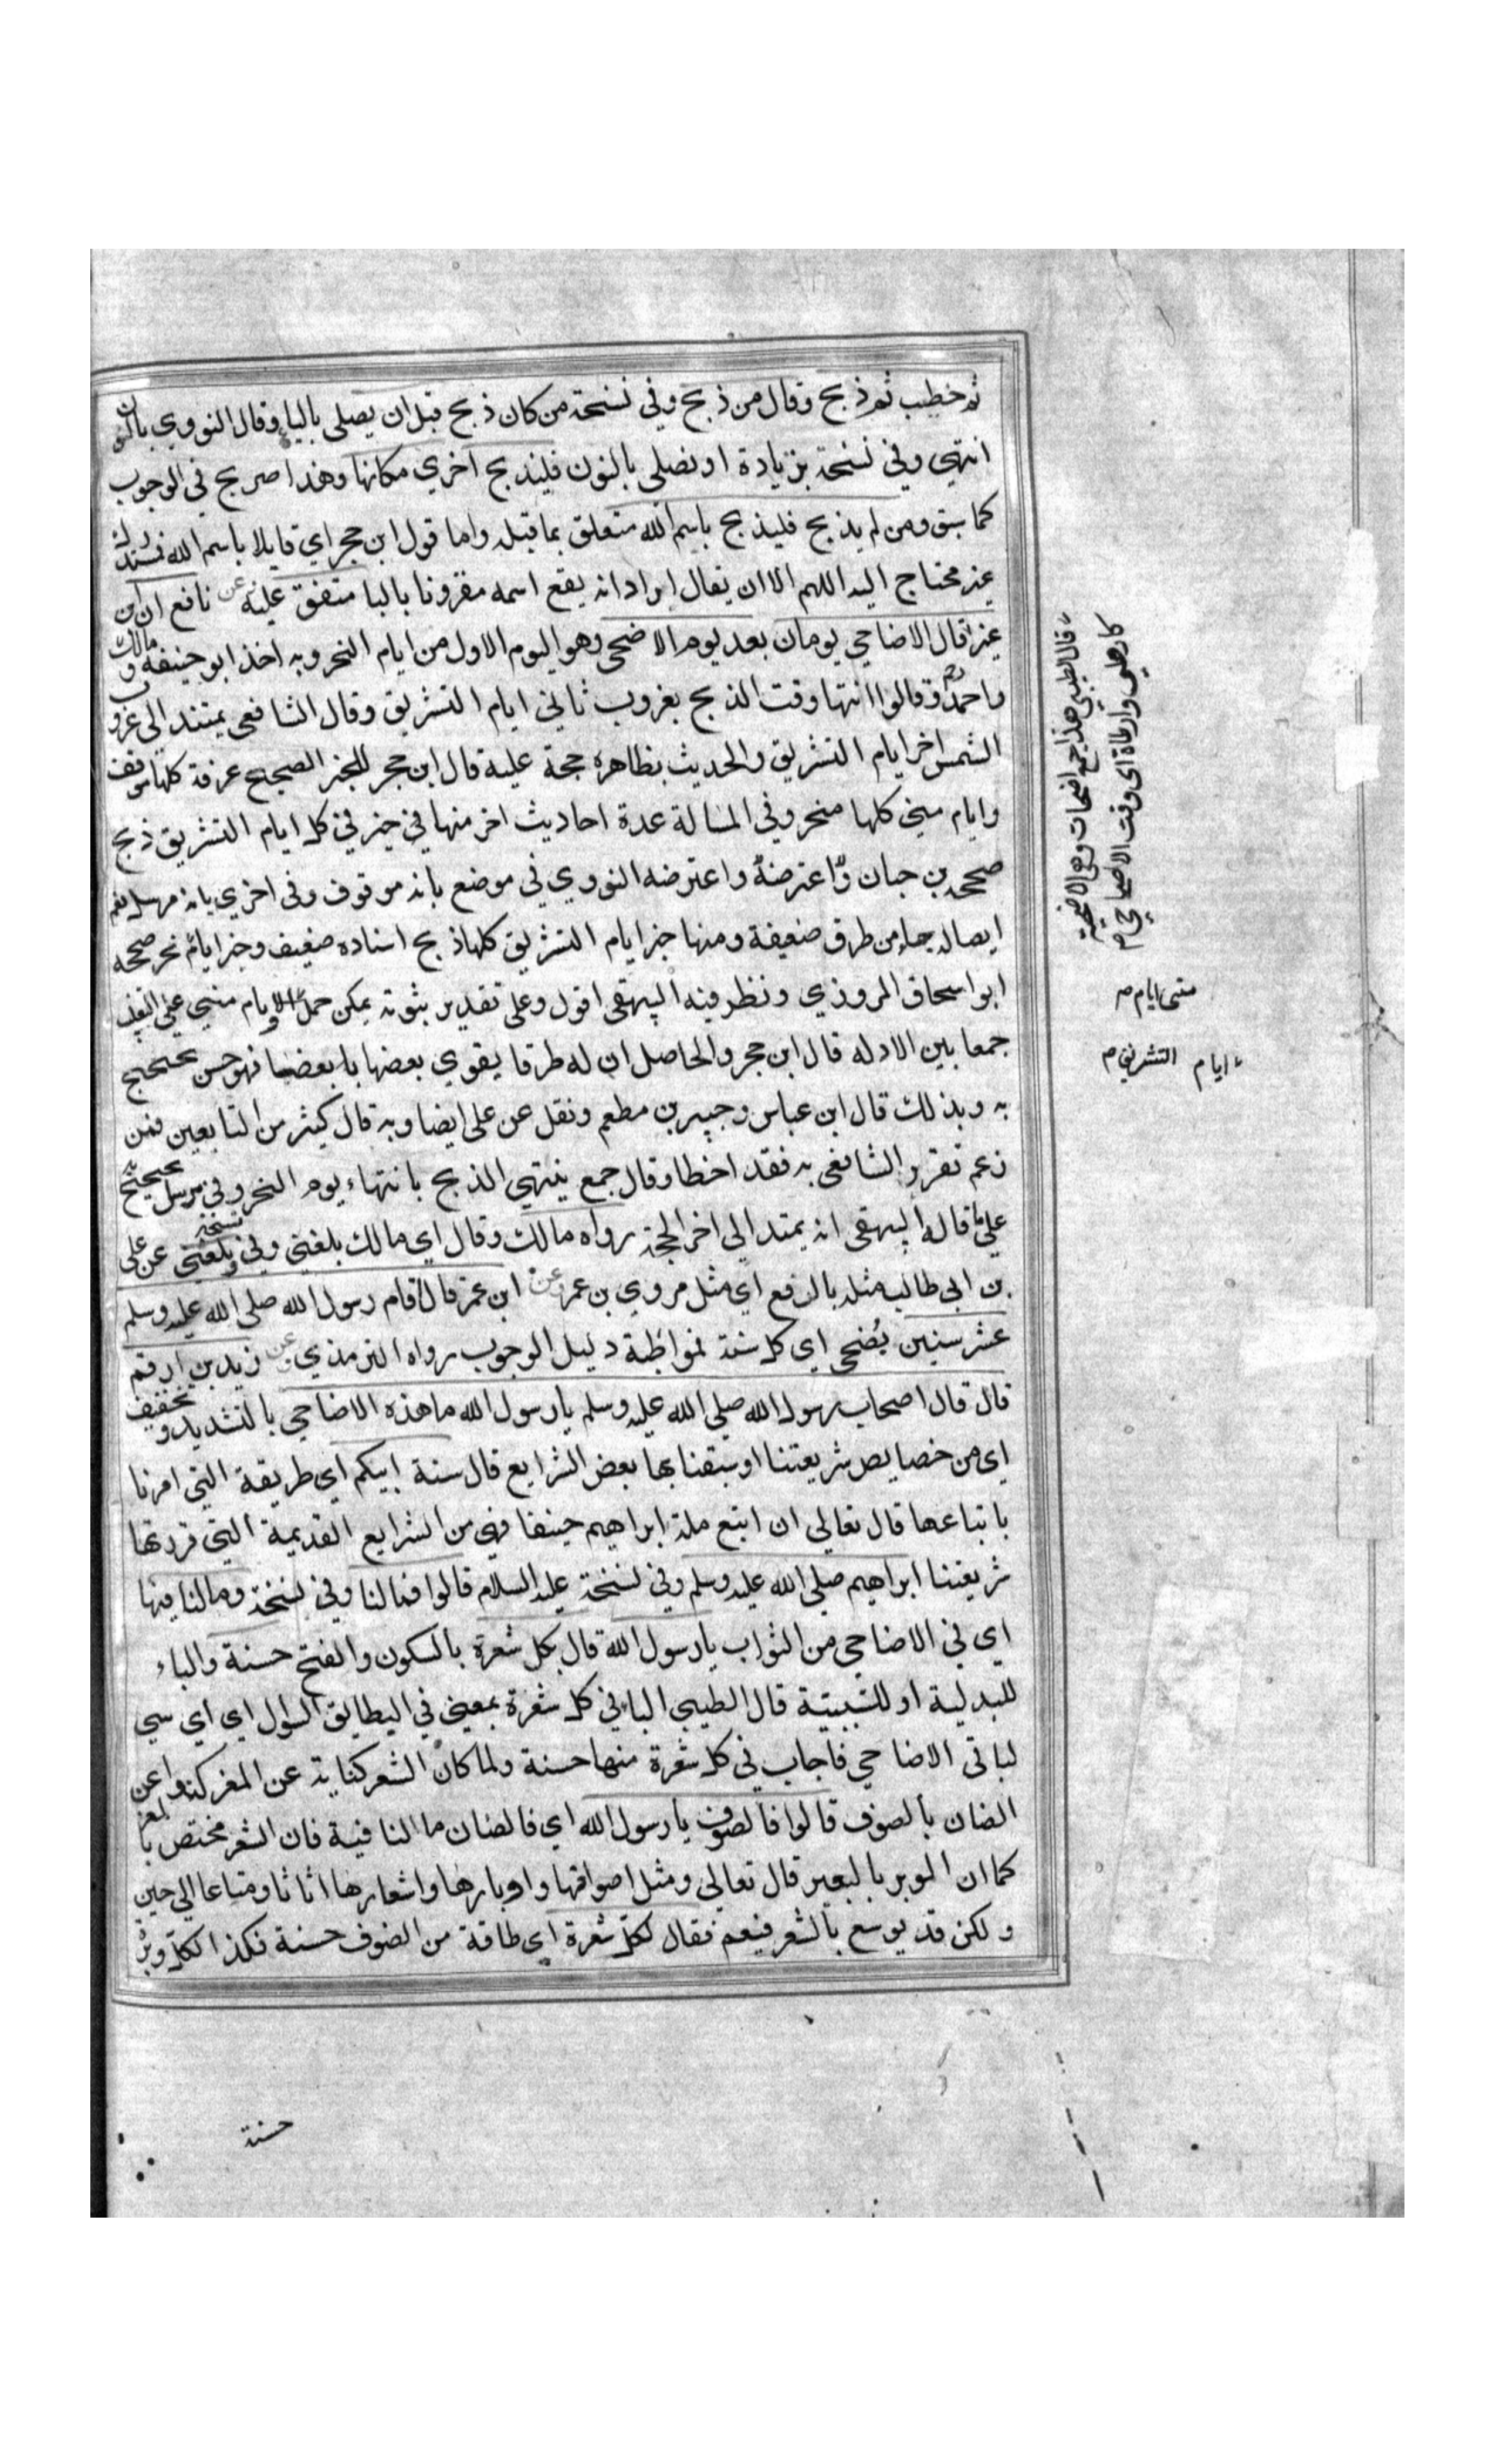 ثم خطب ثم ذبح وقال من ذبح وفي نسخة من كان ذبح قبل ان يصلي بالياء وقال النووي بالنون
انتهي وفي نسخة بزيادة او نصلي بالنون فليذبح اخري مكانها وهذا صريح في الوجوب
كما سبق ومن لم يذبح فليذبح باسم الله متعلق بما قبله واما قول ابن حجر اي قايلا باسم الله
غير محتاج اليه اللهم الا ان يقال اراد انه يقع اسمه مقرونا بالبا متفق عليه عن نافع ان بن
عمر قال الاضاحي يومان بعد يوم الاضحى وهو اليوم الاول من ايام النحر وبه اخذ ابو حنيفه ومالك
واحمد وقالوا انتها وقت الذبح بغروب ثاني ايام التشريق وقال الشافعي يمتد الى غروب
الشمس اخر ايام التشريق والحديث بظاهره حجة عليه قال ابن حجر للخبر الصحيح عرفة كلها موقف
وايام مني كلها منحر وفي المسالة عدة احاديث اخر منها في خبر في كل ايام التشريق ذبح
صححه بن حبان واعترضه واعترضه النووي في موضع بانه موقوف وفى اخري بانه مرسل نعم
ايصاله جاء من طرق ضعيفة ومنها خبر ايام التشريق كلها ذبح اسناده ضعيف وخبر ايام نحر صححه
ابو اسحاق المروزي ونظر فيه البيهقي اقول وعلى تقدير ثبوته يمكن حمل الايام مني على
جمعا بين الادله قال ابن حجر والحاصل ان له طرقا يقوي بعضها بابعضها فهو حسن يحتج
به وبذلك قال ابن عباس وجبير بن مطعم ونقل عن على ايضا وبه قال كثير من التابعين فمن
زعم تفرد الشافعي به فقد اخطا وقال جمع ينتهي الذبح بانتهاء يوم النحر وفي مرسل يحتج به
على ما قاله البيهقي انه يمتد الى اخر الحجة رواه مالك وقال اي مالك بلغني وفي نسخة وبلغني عن على
بن ابى طالب مثله بالرفع اي مثل مروي بن عمر عن ابن عمر قال اقام رسول الله صلى الله عليه وسلم
عشر سنين يُضحي اي كل سنة فمواظبة دليل الوجوب رواه الترمذي عن زيد بن ارقم
قال قال اصحاب رسول الله صلي الله عليه وسلم يا رسول الله ما هذه الاضاحي بالتشديد وتخفيف
اى من خصايص شريعتنا او سبقنا بها بعض الشرايع قال سنة ابيكم اي طريقة التي امرنا
باتباعها قال تعالي ان اتبع ملة ابراهيم حنيفا فهي من الشرايع القديمة التي قررتها
شريعتنا ابراهيم صلي الله عليه وسلم وفي نسخة عليه السلام قالوا فمالنا وفي نسخة ومالنا فيها
اي في الاضاحي من الثواب يا رسول الله قال بكل شعرة بالسكون والفتح حسنة والباء
للبدلية او للسببية قال الطيبي الباء في كل شعرة بمعنى في ليطابق السوال اي اي سي
لنا في الاضاحي فاجاب في كل شعرة منها حسنة ولما كان الشعر كناية عن المعز كنوا عن
الضان بالصوف قالوا فالصوف يا رسول الله اي فالضان ما النا فية فان الشعر مختص بالمعز
كما ان الوبر بالبعير قال تعالي ومثل اصوافها واوبارها واشعارها اثاثا ومتاعا الي حين
ولكن قد يوسع بالشعر فيعم فقال لكل شعرة اي طاقة من الصوف حسنة فكذا لكل وبر
حسنة
قال الطيبي هذا جمع اضحات وهي الاضحية
كارطى وارطاة اى وقت الاضاحي م
متى ايام م
ايام التشريق م